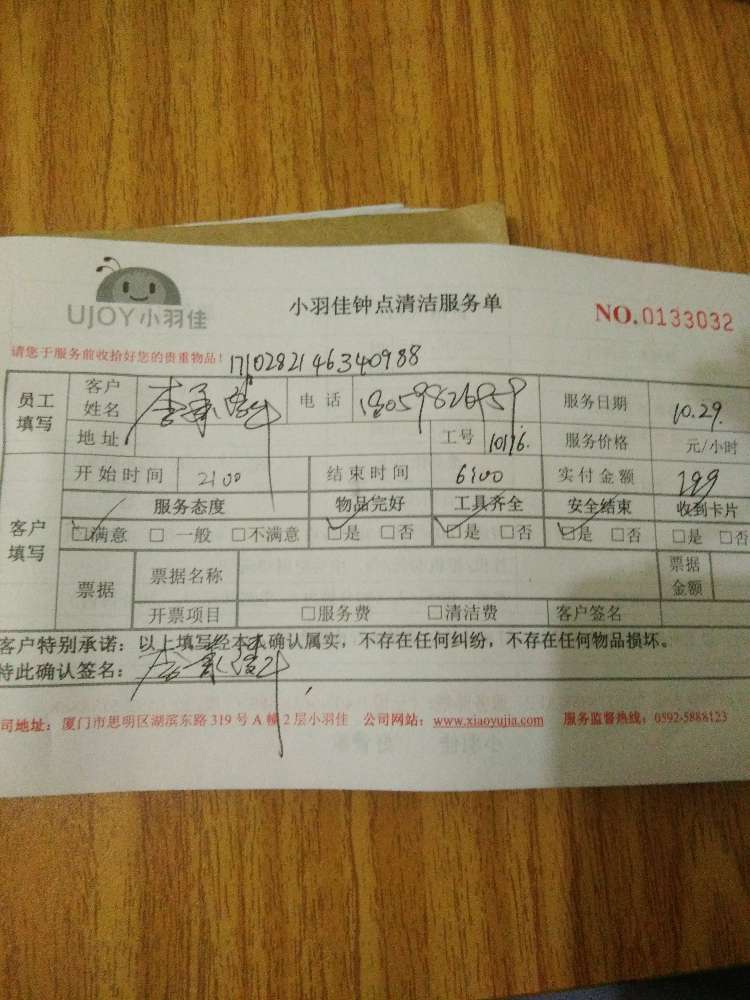 UJOY小羽佳
小羽佳钟点清洁服务单
NO.0133032
请您于服务前收拾好您的贵重物品！ 1710282146340988
员工填写 客户姓名 电话 服务日期 10.29.
地址 工号 10176. 服务价格 元/小时
开始时间 2:00 结束时间 6:00 实付金额 199
客户填写 服务态度 物品完好 工具齐全 安全结束 收到卡片
☑满意 □一般 □不满意 ☑是 □否 ☑是 □否 ☑是 □否 □是 □否
票据 票据名称 票据金额
开票项目 □服务费 □清洁费 客户签名
客户特别承诺：以上填写经本人确认属实，不存在任何纠纷，不存在任何物品损坏。
特此确认签名：
司地址：厦门市思明区湖滨东路319号A幢2层小羽佳 公司网站：www.xiaoyujia.com 服务监督热线：0592-5888123